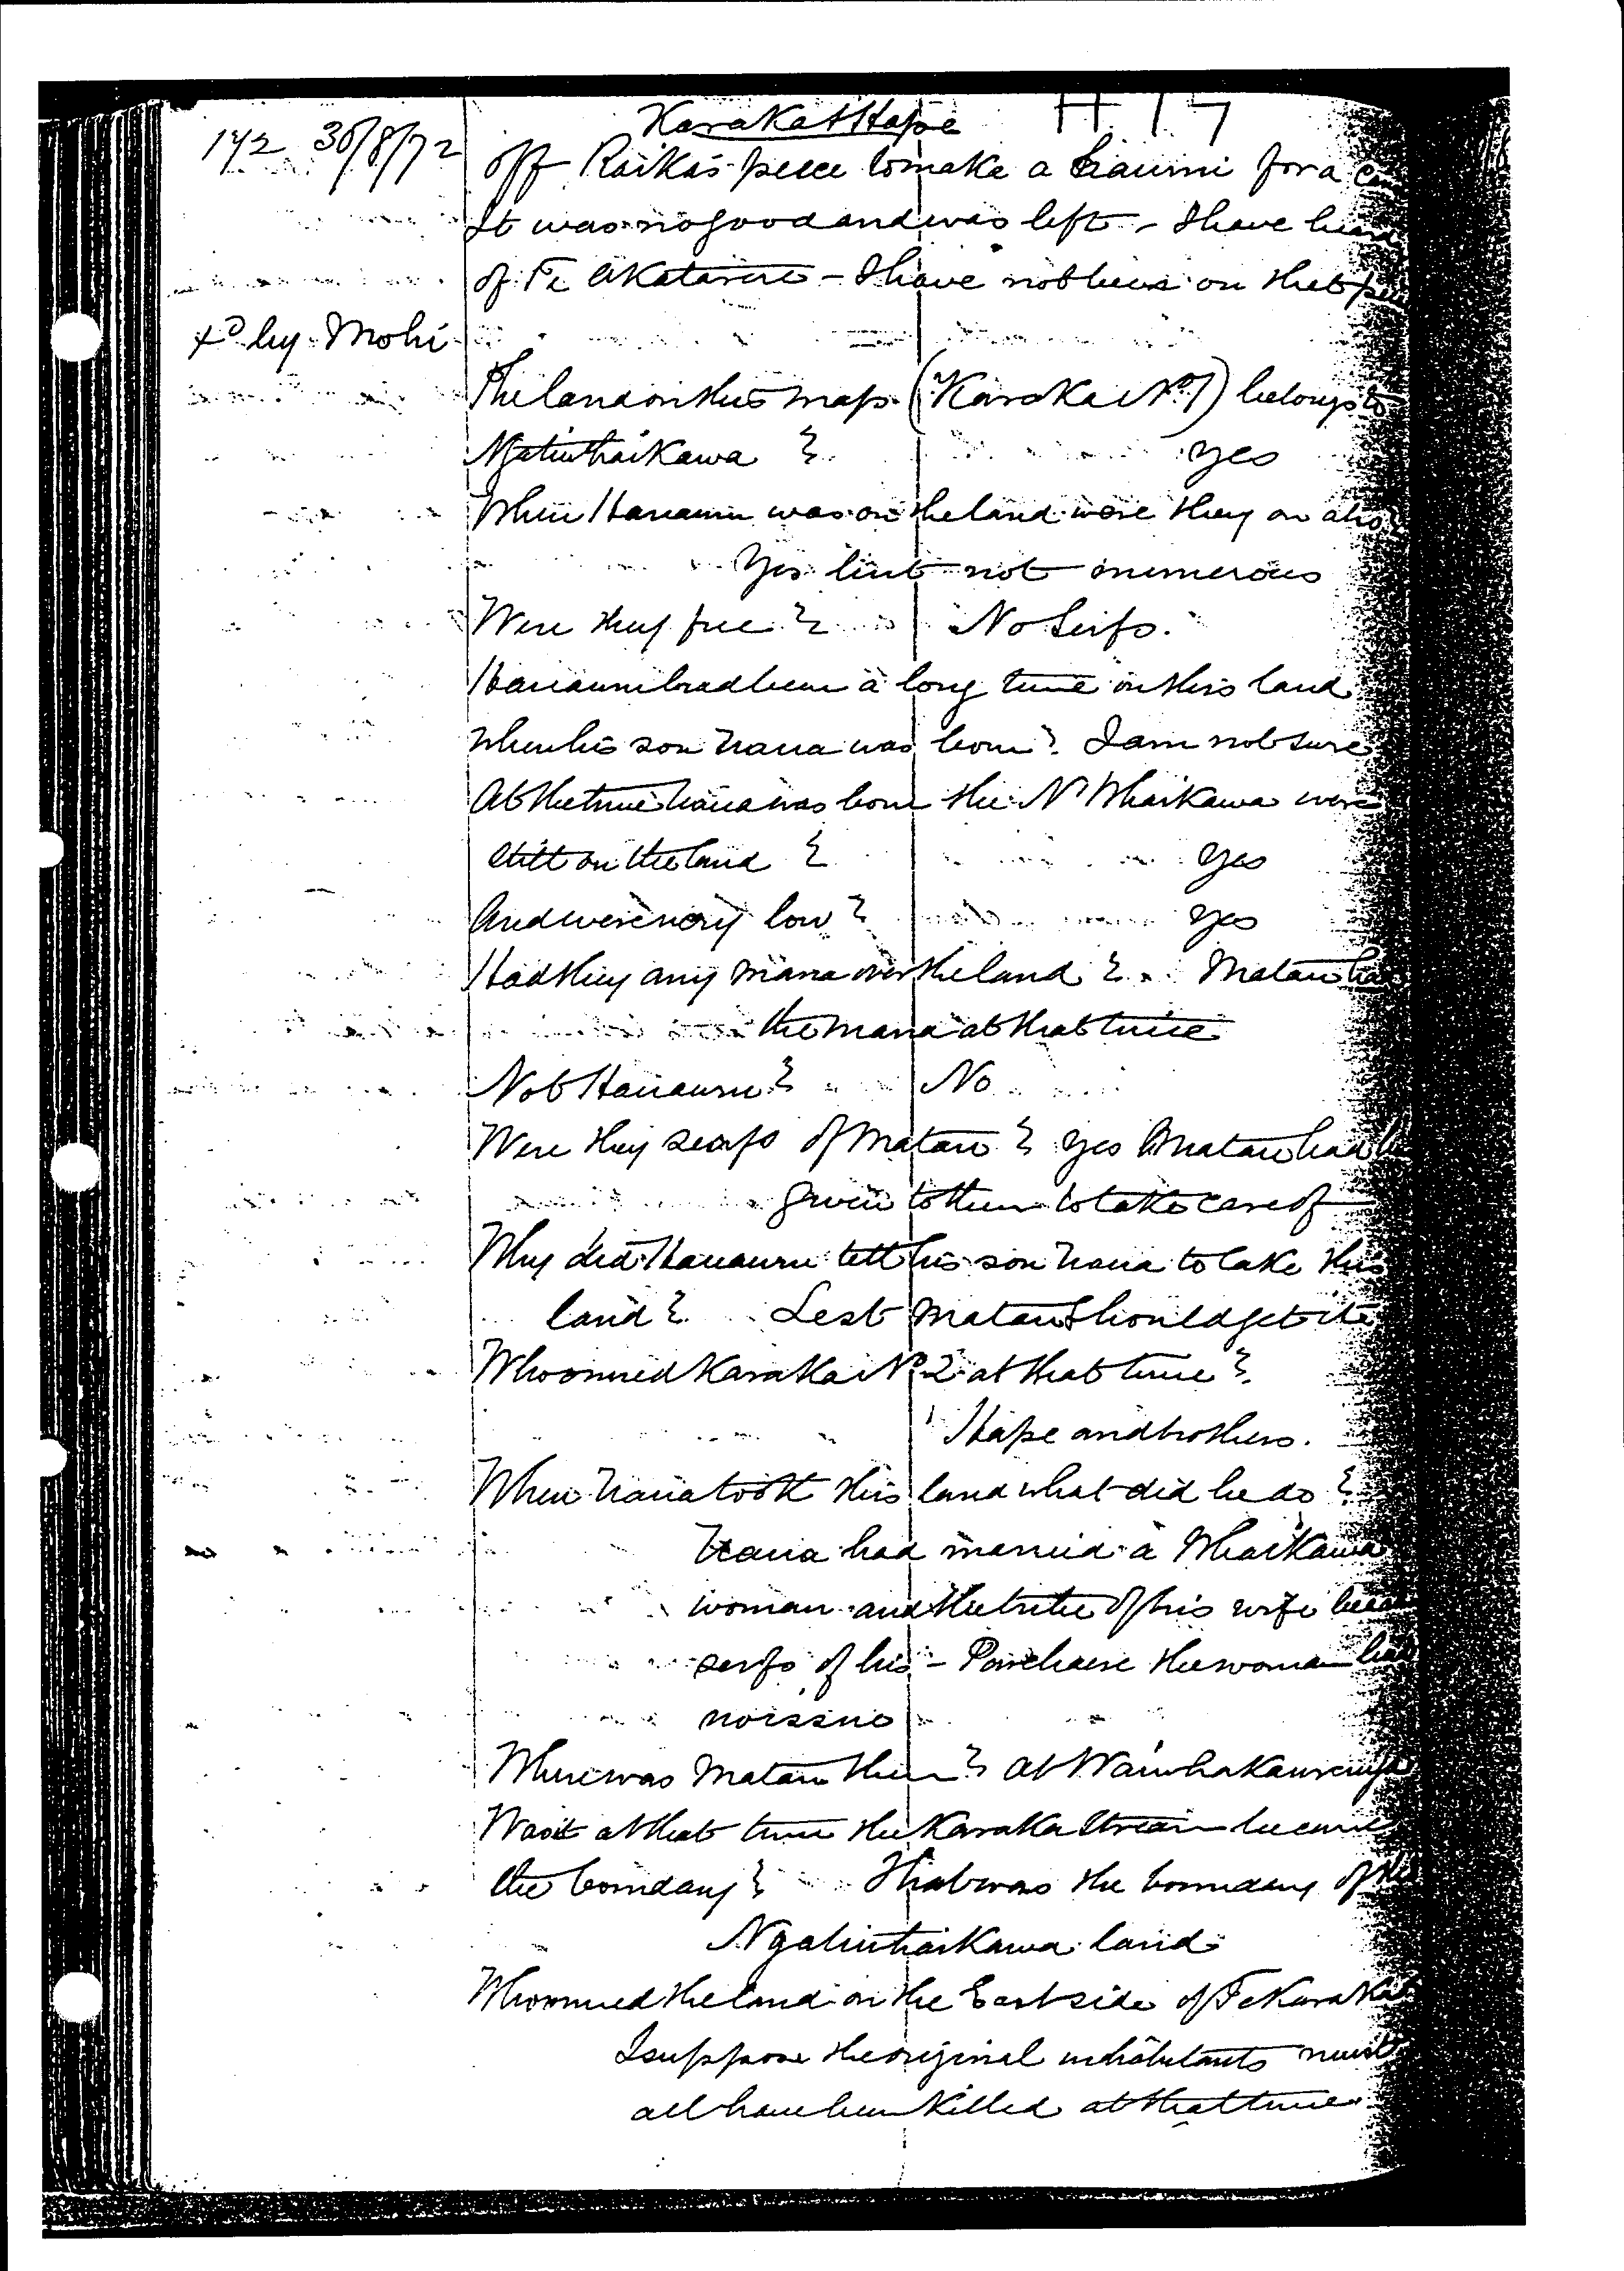 Karaka & Hape H 17
142 30/8/72
off Raika's piece to make a haumi for a
It was no good and was left - I have heard
of Te Akatarere - I have not been on that
xd by Mohi
The land on this map (Karaka No 1) belongs to
Ngatiwhaikawa ? Yes
When Hauauru was on the land were they on also
Yes but not numerous
Were they free ? No Serfs.
Hauauru had been a long time on this land
when his son Uaua was born ? I am not sure
At the time Uaua was born the N' Whaikawa were
still on the land ? Yes
And were very low ? Yes
Had they any mana over the land ? Matau had
the mana at that time
Not Hauauru ? No
Were they serfs of Matau ? Yes Matau had
given to them to take care of
Why did Hauauru tell his son Uaua to take this
land ? Lest Matau should get it
Who owned Karaka No 2 at that time ?
Hape and brothers.
When Uaua took this land what did he do ?
Uaua had married a Whaikawa
woman and the tribe of his wife
serfs of his - the woman had
no issue
Where was Matau then ? At
Was it at that time the Karaka Stream became
the boundary ? That was the boundary of the
Ngatiwhaikawa land
Who owned the land on the East side of Te Karaka
I suppose the original inhabitants must
all have been killed at that time